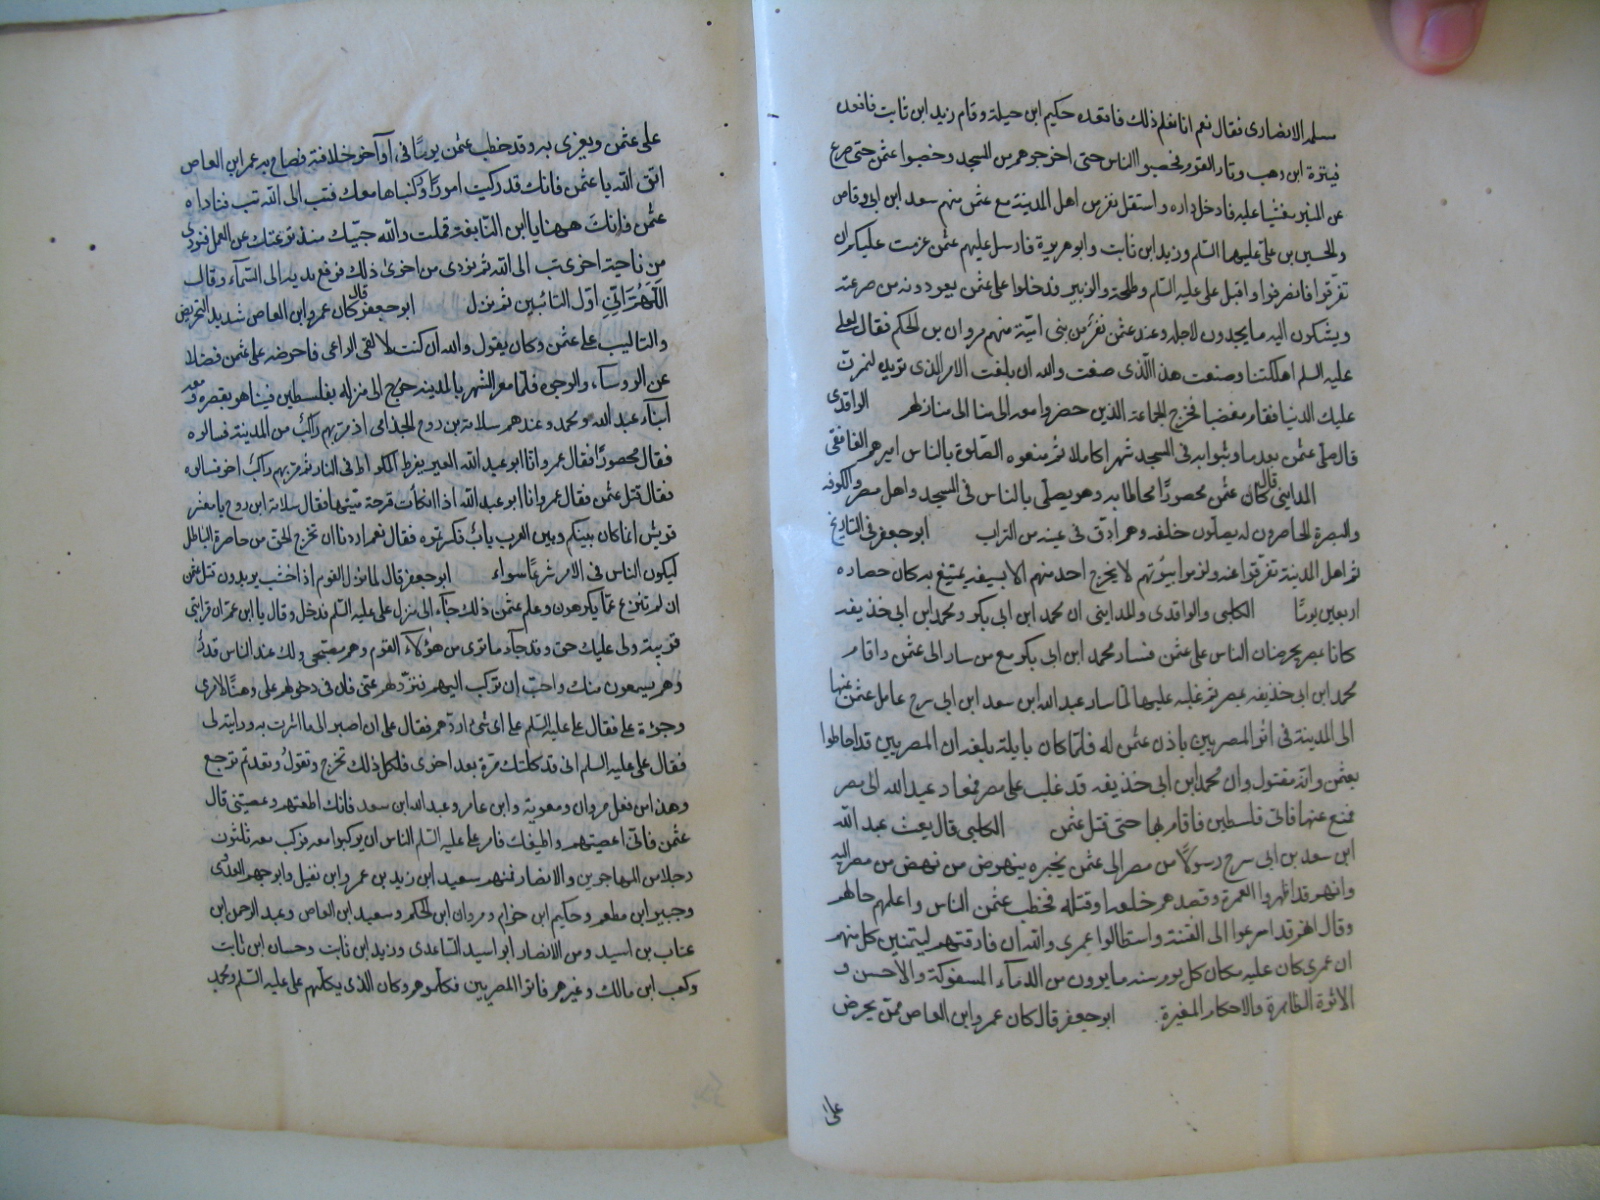 سلمه الانصارى فقال نعم انا نعلم ذلك فاقعده حكيم ابن جبلة وقام زيد ابن ثابت فاقعده
قتيرة ابن وهب وثار القوم فحصبوا الناس حتى اخرجوهم من المسجد وحصبوا عثمن حتى صرع
عن المنبر مغشيا عليه فادخل داره واستقل نفر من اهل المدينة مع عثمن منهم سعد ابن ابى وقاص
والحسين بن على عليهما السلم وزيد ابن ثابت وابو هريرة فارسل عليهم عثمن عزمت عليكم ان
تفرقوا فانصرفوا واقبل على عليه السلم وطلحة والزبير فدخلوا على عثمن يعودونه من صرعته
ويشكون اليه ما يجدون لاجله وعند عثمن نفر من بنى امية منهم مروان بن الحكم فقال لعلى
عليه السلم اهلكتنا وصنعت هذا الذى صنعت والله ان بلغت الامر الذى تريد لنمرن
عليك الدنيا فقام مغضبا فخرج الجماعة الذين حضروا معه الى منازلهم الواقدى
قال صلى عثمن بعد ما وثبوا به فى المسجد شهرا كاملا ثم منعوه الصلوة بالناس اميرهم الغافقى
المداينى قال كان عثمن محصورا محاطا به وهو يصلى بالناس فى المسجد واهل مصر والكوفه
والبصرة الحاصرون له يصلون خلفه وهم ادق فى عينه من التراب ابو جعفر فى التاريخ
ثم اهل المدينة تفرقوا عنه ولزموا بيوتهم لا يخرج احد منهم الا بسيفه يمتنع به كان حصاره
اربعين يوما الكلبى والواقدى والمداينى ان محمد ابن ابى بكر ومحمد ابن ابى حذيفه
كانا بمصر يحرضان الناس على عثمن فسار محمد ابن ابى بكر مع من سار الى عثمن واقام
محمد ابن ابى حذيفه بمصر ثم غلبه عليها لما سار عبد الله ابن سعد ابن ابى سرح عامل عثمن عنها
الى المدينة فى اثر المصريين باذن عثمن له فلما كان بايلة بلغه ان المصريين قد احاطوا
بعثمن وانه مقتول وان محمد ابن ابى حذيفه قد غلب على مصر فعاد عبد الله الى مصر
فمنع عنها فاتى فلسطين فاقام بها حتى قتل عثمن الكلبى قال بعث عبد الله
ابن سعد بن ابى سرح رسولا من مصر الى عثمن يخبره بنهوض من نهض من مصر اليه
وانهم قد اظهروا العمرة وقصدهم خلعه او قتله فخطب عثمن الناس واعلمهم حالهم
وقال انهم قد اسرعوا الى الفتنة واستطالوا عمرى والله ان فارقتهم ليتمنين كل منهم
ان عمرى كان عليه مكان كل يوم سنه مما يرون من الدمآء المسفوكة والاحسن و
الاثرة الظاهرة والاحكام المغيرة ابو جعفر قال كان عمرو ابن العاص ممن يحرض
على
على عثمن ويغرى به وقد خطب عثمن يوما فى اواخر خلافته فصاح به عمرو ابن العاص
اتق الله يا عثمن فانك قد ركبت امورا وركبناها معك فتب الى الله نتب فناداه
عثمن فانك ههنا يا ابن النابغة قملت والله جبتك منذ نزعتك عن العمل فنودى
من ناحية اخرى تب الى الله ثم نودى من اخرى ذلك فرفع يديه الى السماء وقال
اللهم انى اول التائبين ثم نزل ابو جعفر قال كان عمرو ابن العاص شديد التحريض
والتاليب على عثمن وكان يقول والله ان كنت لالقى الراعى فاحرضه على عثمن فضلا
عن الروسآء والوجوه فلما سعر الشر بالمدينه خرج الى منزله بفلسطين فبينا هو بقصره ومعه
ابناه عبد الله ومحمد وعندهم سلامة بن روح الجذامى اذ مر بهم راكب من المدينة فسالوه
فقال محصورا فقال عمرو انا ابو عبد الله العير يضرط والمكواة فى النار ثم مر بهم راكب اخر فسالوه
فقال قتل عثمن فقال عمرو انا ابو عبد الله اذا نكات قرحة ادميتها فقال سلامة ابن روح يا معشر
قريش انما كان بينكم وبين العرب باب فكسرتموه فقال نعم اردنا ان نخرج الحق من خاصرة الباطل
ليكون الناس فى الامر شرعا سواء ابو جعفر قال لما نزل القوم ذا خشب يريدون قتل عثمن
ان لم ينزع عما يكرهون وعلم عثمن ذلك جآء الى منزل على عليه السلم فدخل وقال يا ابن عم ان قرابتى
قريبة ولى عليك حق وقد جآء ما ترى من هؤلاء القوم وهم مصبحى ولك عند الناس قدر
وهم يسمعون منك واحب ان تركب اليهم فتردهم عنى فان فى دخولهم على وهنا لامرى
وجرءة على فقال على عليه السلم على اى شئ اردهم فقال على ان اصير الى ما اشرت به ورايته لى
فقال على عليه السلم انى قد كلمتك مرة بعد اخرى فلكل ذلك تخرج وتقول وتعد ثم ترجع
وهذا من فعل مروان ومعوية وابن عامر وعبد الله ابن سعد فانك اطعتهم وعصيتنى قال
عثمن فانى اعصيهم واطيعك فامر على عليه السلم الناس ان يركبوا معه فركب معه ثلثون
رجلا من المهاجرين والانصار فمنهم سعيد ابن زيد بن عمرو ابن نفيل وابو جهم العدوى
وجبير ابن مطعم وحكيم ابن حزام ومروان ابن الحكم وسعيد ابن العاص وعبد الرحمن ابن
عتاب بن اسيد ومن الانصار ابو اسيد الساعدى وزيد ابن ثابت وحسان ابن ثابت
وكعب ابن مالك وغيرهم فاتوا المصريين فكلموهم وكان الذى يكلمهم على عليه السلم ومحمد